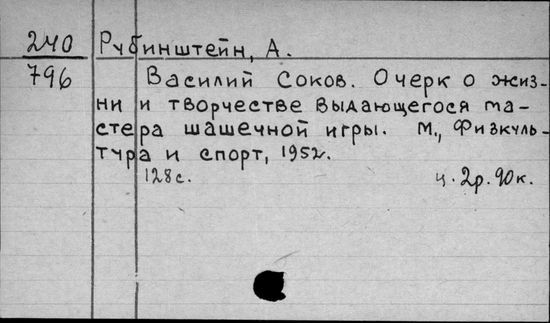 240 Рубинштейн, А.
796 Василий Соков. Очерк о жиз-
ни и творчестве выдающегося ма-
стера шашечной игры. М., Физкуль-
тура и спорт, 1952.
128 с. ц. 2р. 90к.